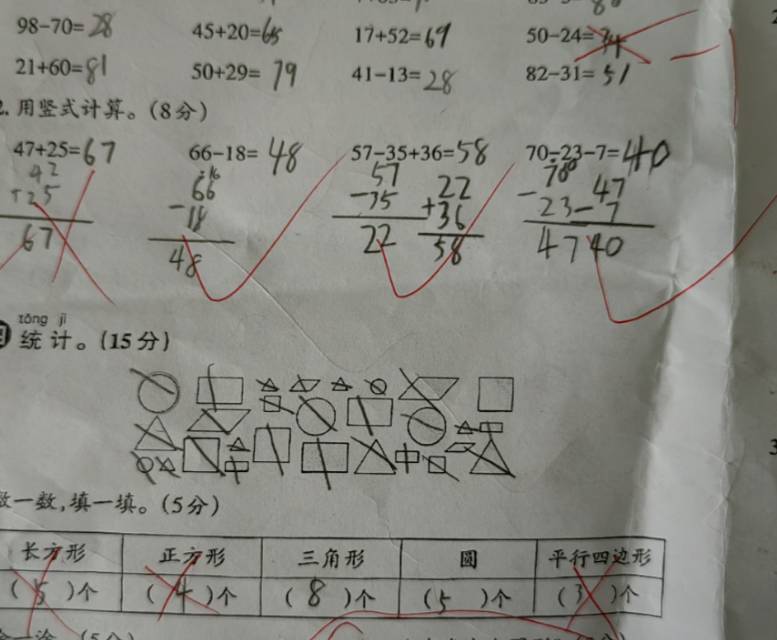 98-70=28 45+20=65 17+52=69 50-24=
21+60=81 50+29= 79 41-13=28 82-31=51
2. 用竖式计算。(8分)
47+25=67 66-18= 48 57-35+36=58 70-23-7=40
42 66 57 22 70 47
+25 -18 -35 +36 -23 -7
67 48 22 58 47 40
tǒng jì
统计。(15分)
数一数,填一填。(5分)
长方形 正方形 三角形 圆 平行四边形
(5)个 (4)个 (8)个 (5)个 (3)个
(5分)